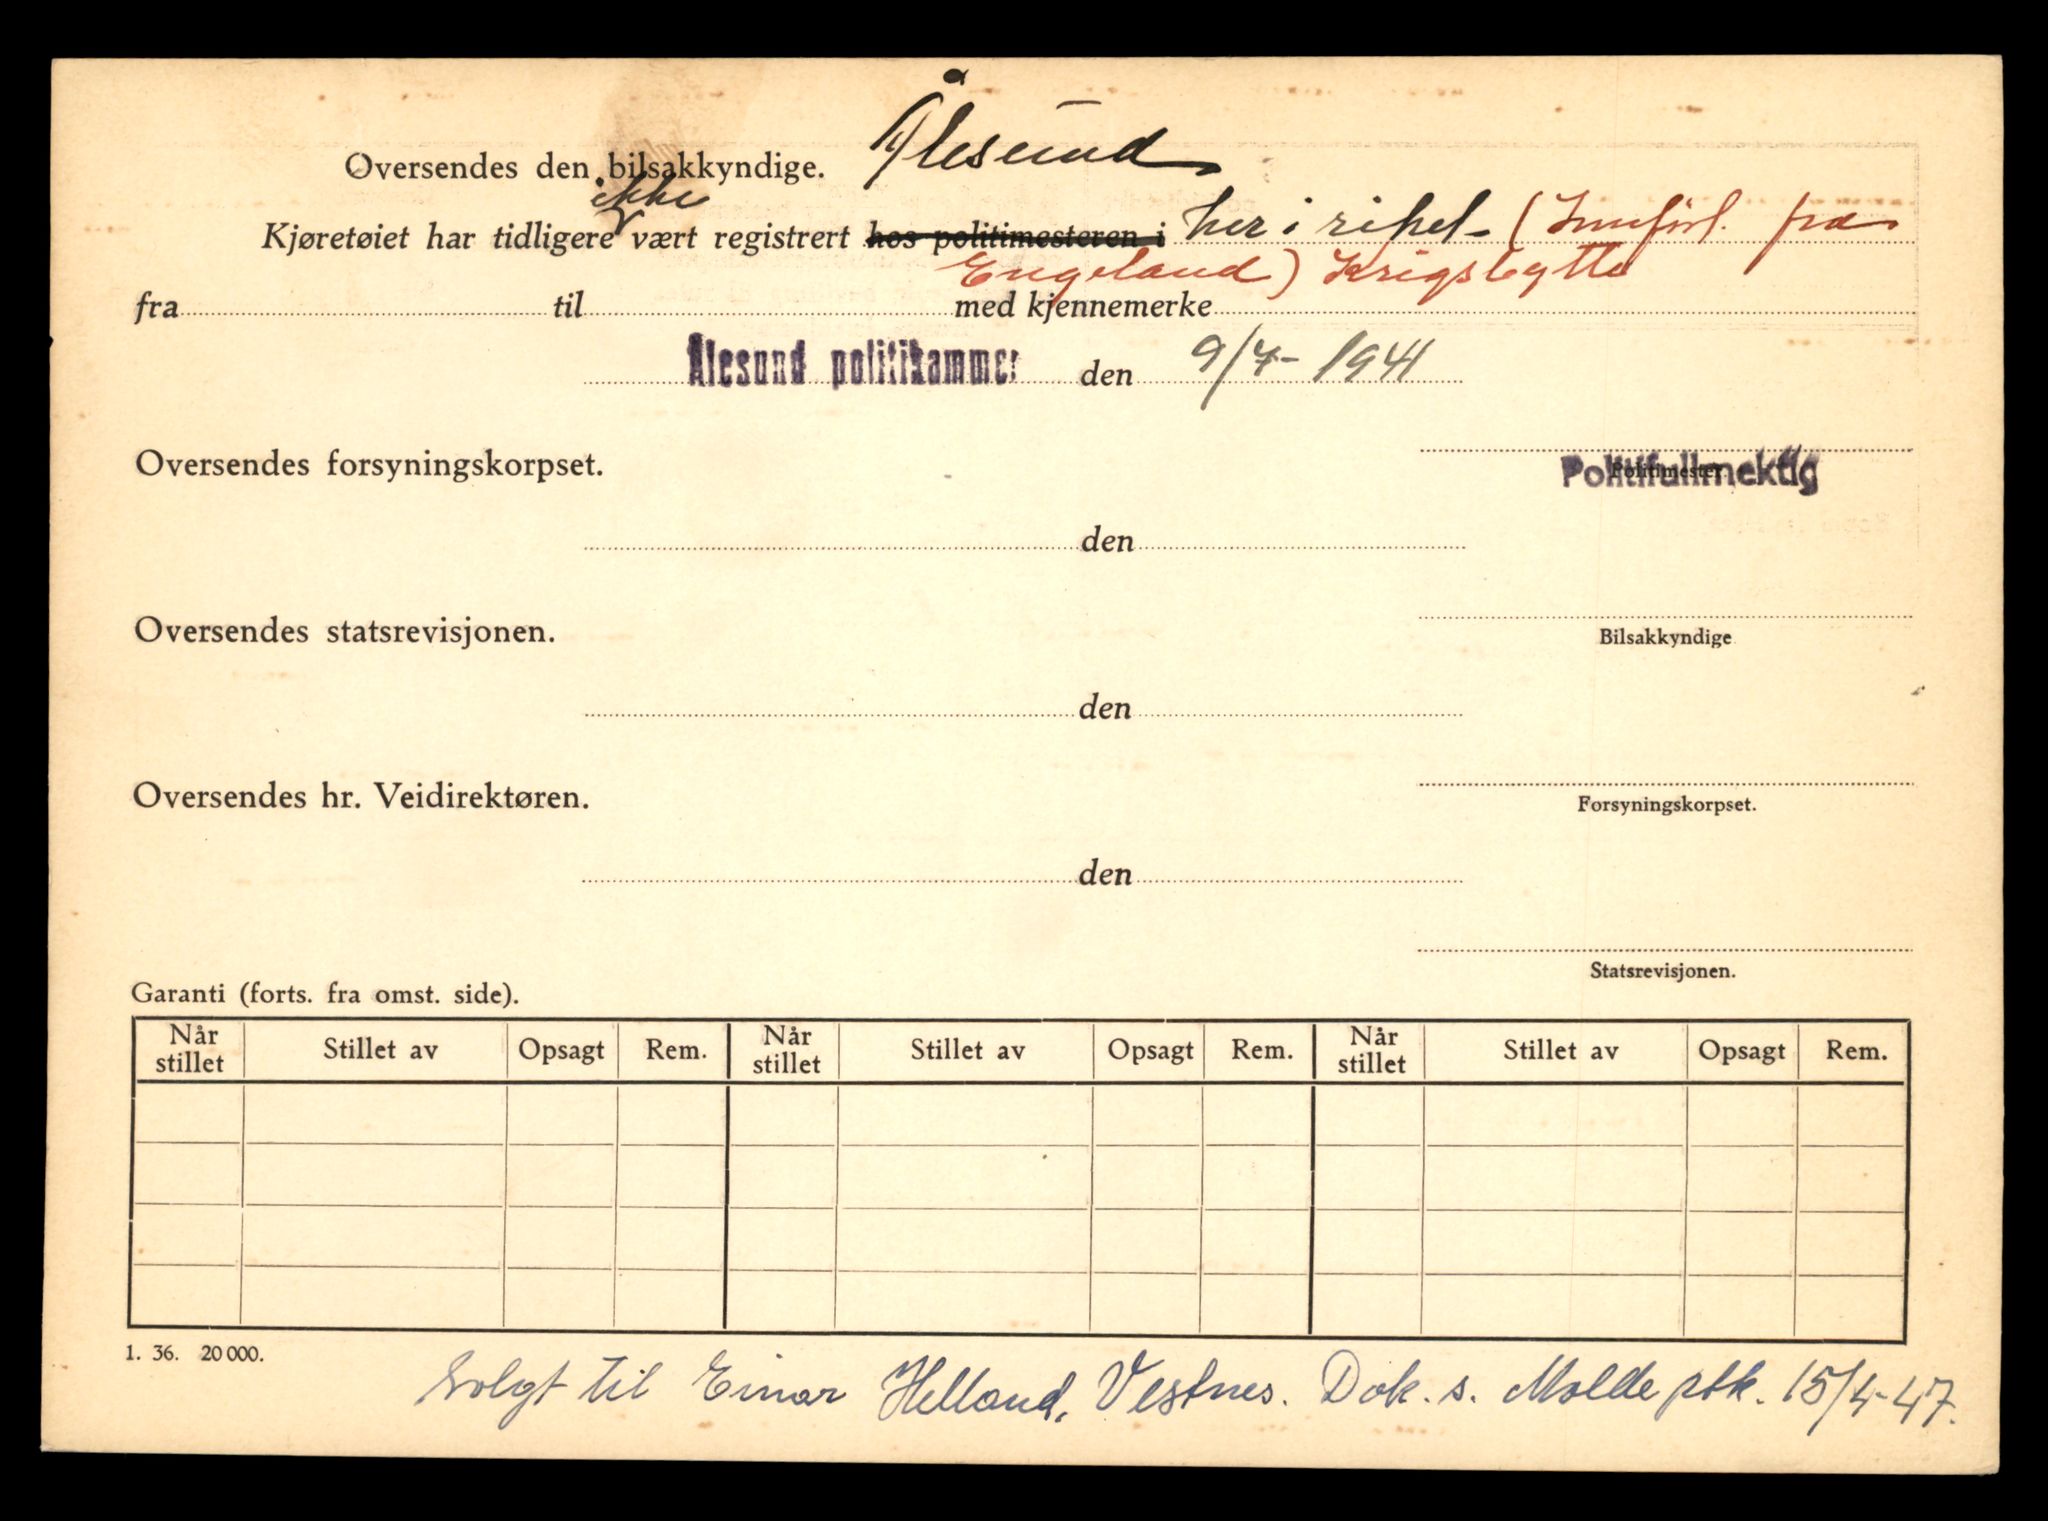 Oversendes den bilsakkyndige. Ålesund
ikke
Kjøretøiet har tidligere vært registrert hos politimesteren i her i riket - (Innført. fra
Engeland) Krigsbytte
fra til med kjennemerke
Ålesund politikammer den 9/7-1941
Oversendes forsyningskorpset.
Politimester.
Politifullmektig
den
Oversendes statsrevisjonen.
Bilsakkyndige
den
Oversendes hr. Veidirektøren.
Forsyningskorpset.
den
Statsrevisjonen.
Garanti (forts. fra omst. side).
Når stillet Stillet av Opsagt Rem. Når stillet Stillet av Opsagt Rem. Når stillet Stillet av Opsagt Rem.
1. 36. 20 000.
Solgt til Einar Helland, Vestnes. Dok. s. Molde ptk. 15/4-47.